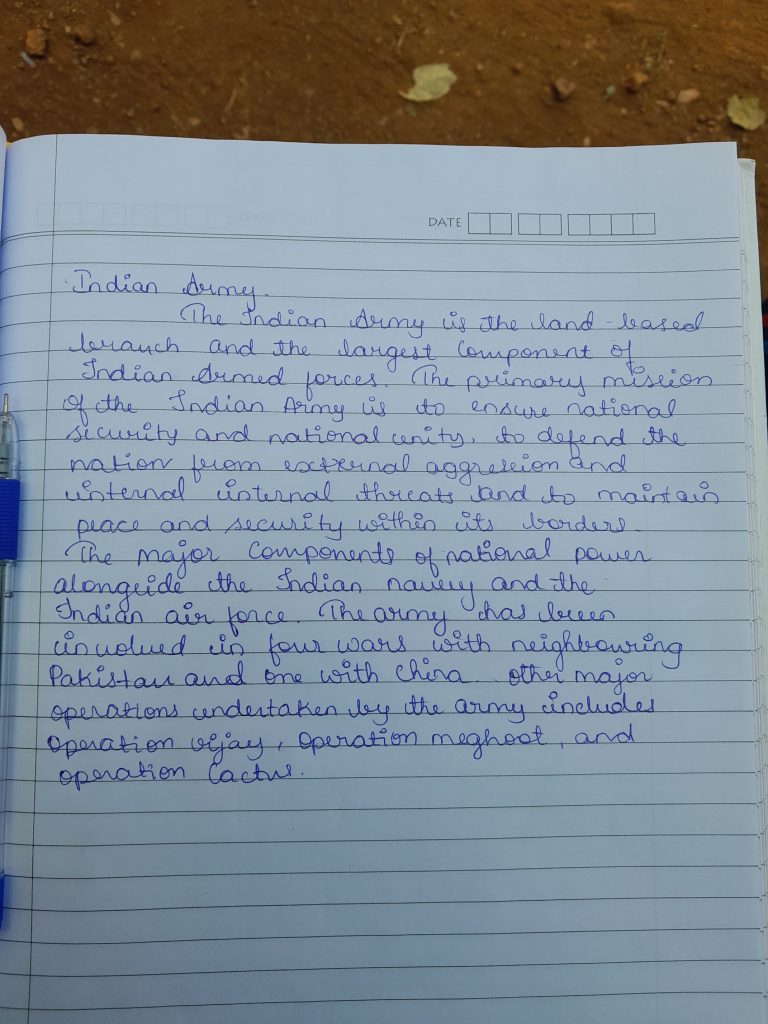 DATE
Indian Army.
The Indian Army is the land-based
branch and the largest Component of
Indian Armed forces. The primary mission
of the Indian Army is to ensure national
security and national unity, to defend the
nation from external aggression and
internal internal threats and to maintain
peace and security within its borders.
The major Components of national power
alongside the Indian navey and the
Indian air force. The army has been
involued in four wars with neighbouring
Pakistan and one with China. other major
operations undertaken by the army includes
operation vijay, operation meghoot, and
operation Cactus.